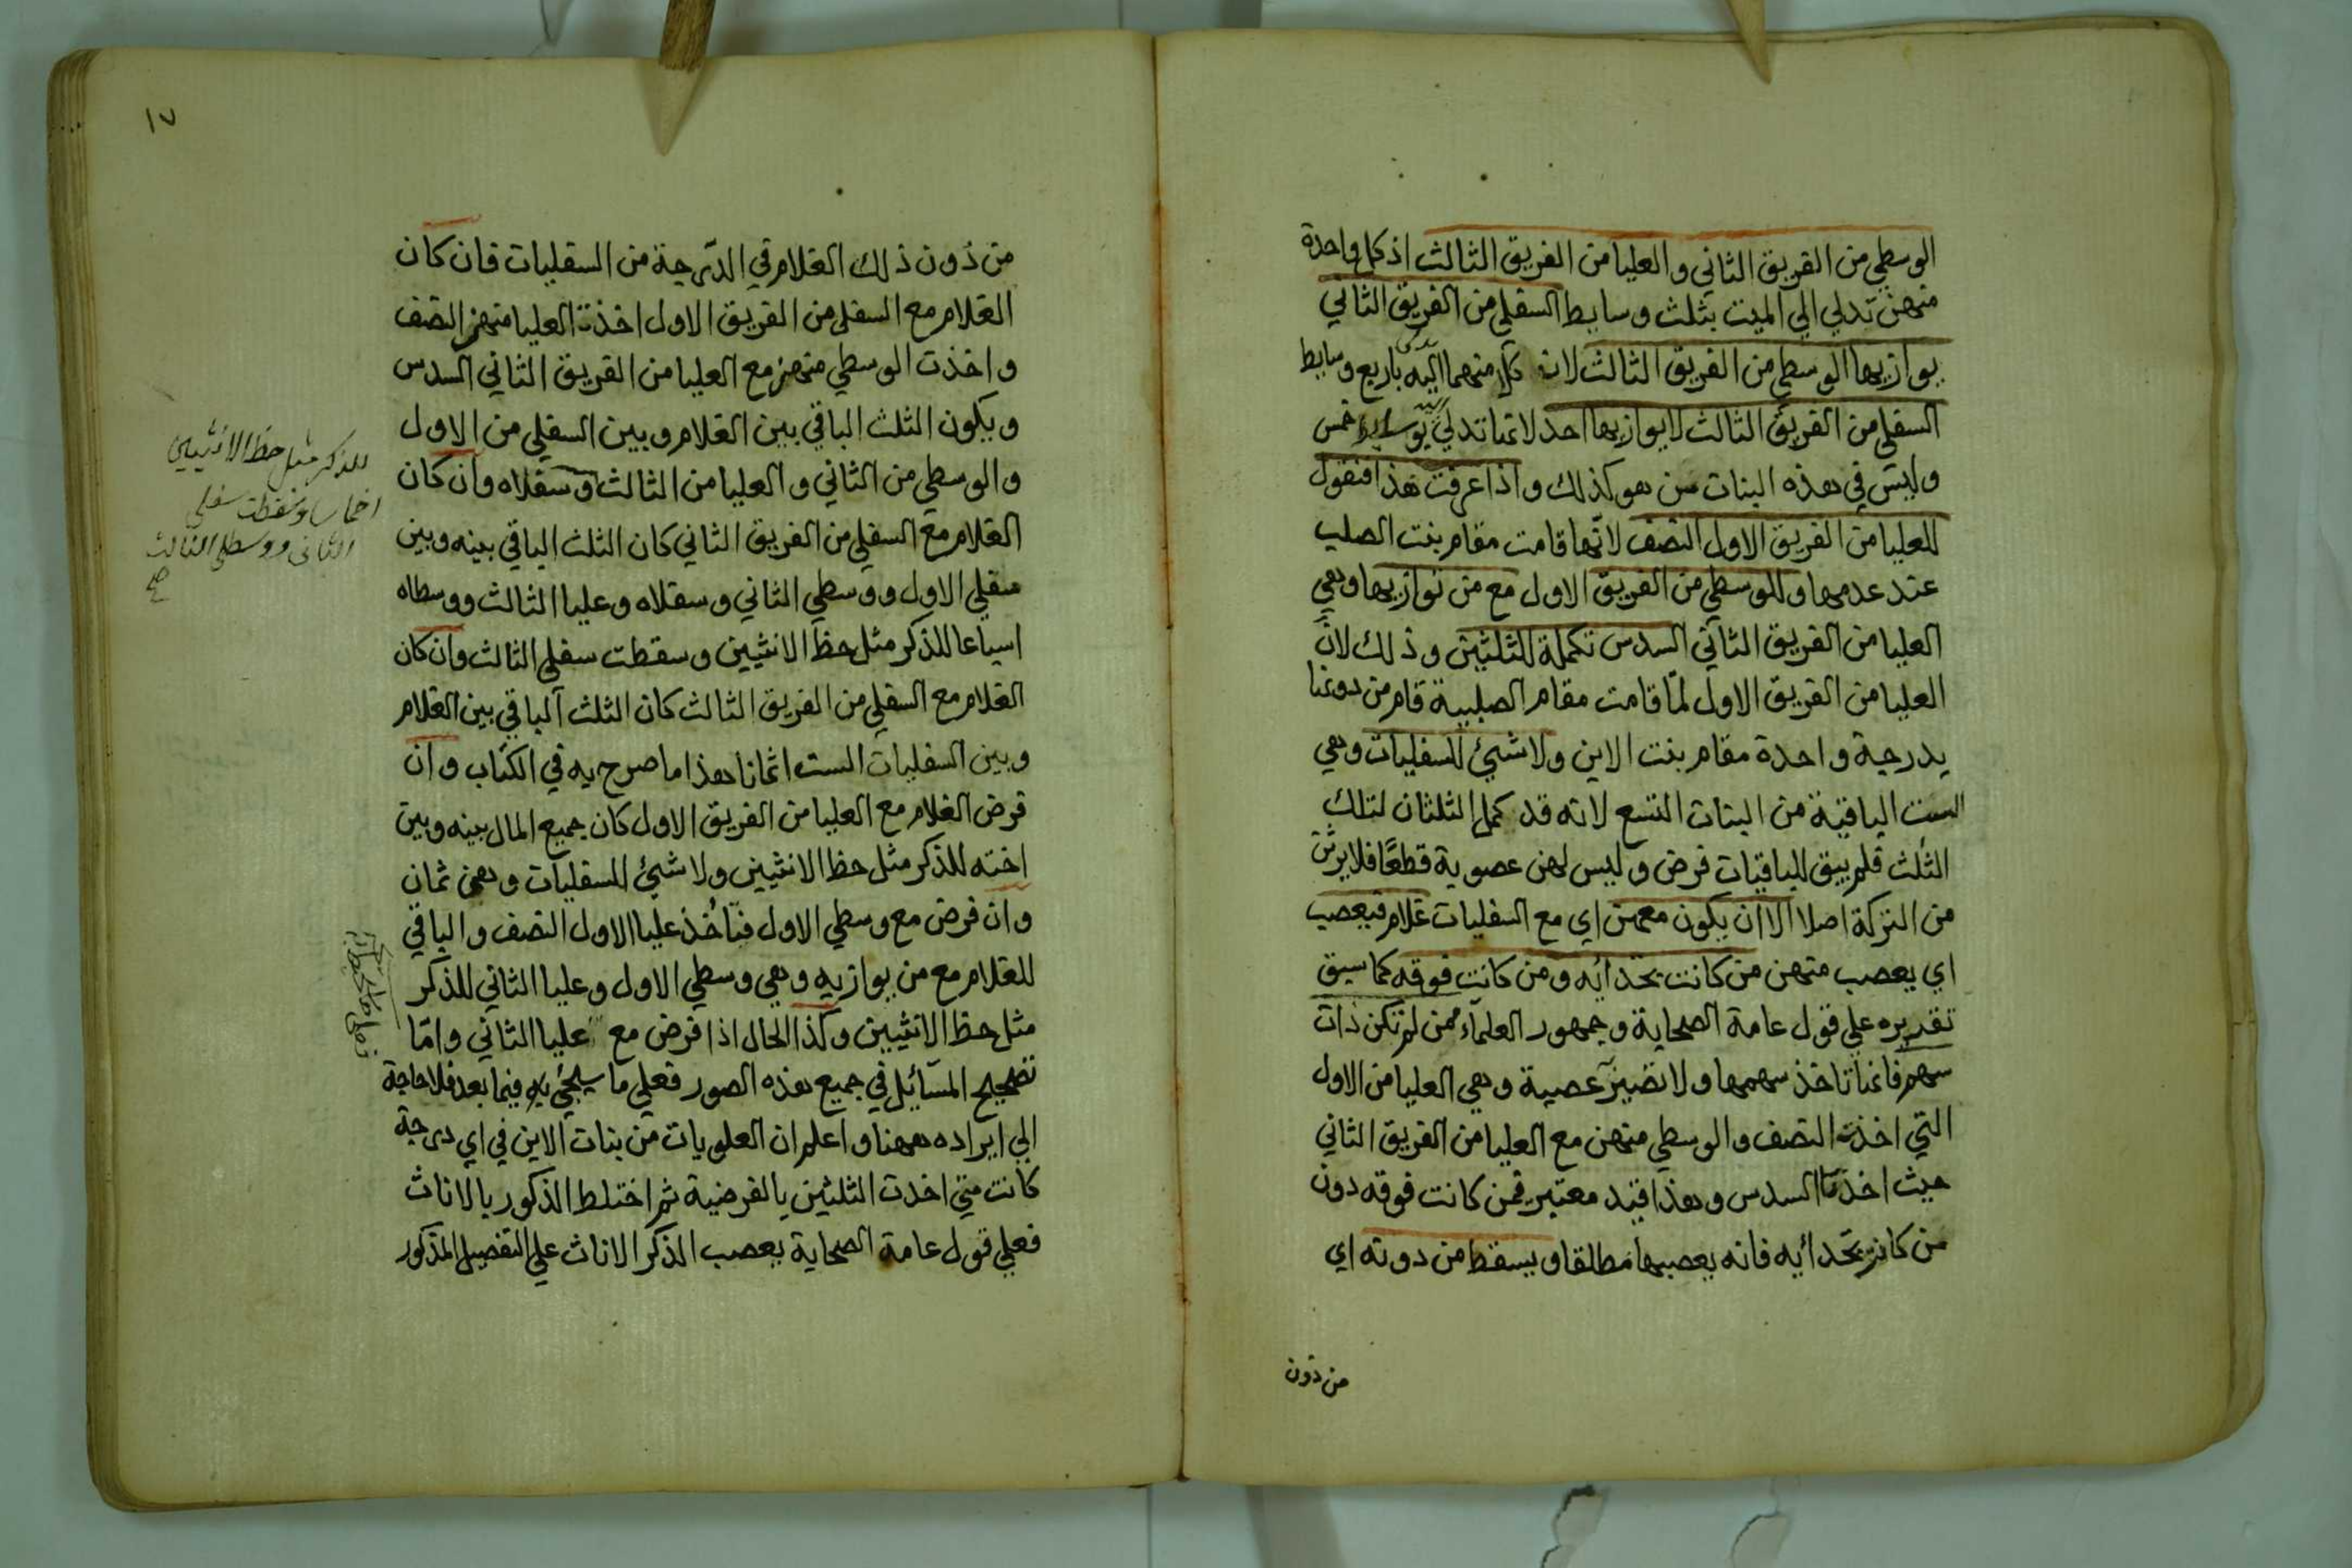 الوسطي من الفريق الثاني والعليا من الفريق الثالث اذ كل واحدة
منهن تدلي الي الميت بثلث وسايط السفلي من الفريق الثاني
يوازيها الوسطي من الفريق الثالث لان كلا منهما اليه باربع وسايط
السفلي من الفريق الثالث لا يوازيها احد لانها تدلي خمس
وليس في هذه البنات من هو كذلك واذا عرفت هذا فنقول
للعليا من الفريق الاول النصف لانها قامت مقام بنت الصلب
عند عدمها وللوسطي من الفريق الاول مع من توازيها وهي
العليا من الفريق الثاني السدس تكملة للثلثين وذلك لان
العليا من الفريق الاول لما قامت مقام الصلبية قام من دونها
بدرجة واحدة مقام بنت الابن ولا شيئ للسفليات وهي
الست الباقية من البنات التسع لانه قد كمل الثلثان لتلك
الثلث فلم يبق للباقيات فرض وليس لهن عصوبة قطعًا فلا يرثن
من التركة اصلا الا ان يكون معهن اي مع السفليات غلام فيعصب
اي يعصب منهن من كانت بحذائه ومن كانت فوقه كما سبق
تقديره علي قول عامة الصحابة وجمهور العلماء ممن لم تكن ذات
سهم فانها تاخذ سهمها ولا تصير عصبة وهي العليا من الاول
التي اخذت النصف والوسطي منهن مع العليا من الفريق الثاني
حيث اخذتا السدس وهذا قيد معتبر فمن كانت فوقه دون
من كانت بحذائه فانه يعصبها مطلقا ويسقط من دونه اي
من دون
١٧
من دون ذلك الغلام في الدرجة من السفليات فان كان
الغلام مع السفلي من الفريق الاول اخذت العليا منهن النصف
واخذت الوسطي منهن مع العليا من الفريق الثاني السدس
ويكون الثلث الباقي بين الغلام وبين السفلي من الاول
والوسطي من الثاني والعليا من الثالث وسفلاه وان كان
الغلام مع السفلي من الفريق الثاني كان الثلث الباقي بينه وبين
سفلي الاول ووسطي الثاني وسفلاه وعليا الثالث ووسطاه
اسباعا للذكر مثل حظ الانثيين وسقطت سفلي الثالث وان كان
الغلام مع السفلي من الفريق الثالث كان الثلث الباقي بين الغلام
وبين السفليات الست اثمانا هذا ما صرح به في الكتاب وان
فرض الغلام مع العليا من الفريق الاول كان جميع المال بينه وبين
اخته للذكر مثل حظ الانثيين ولا شيئ للسفليات وهن ثمان
وان فرض مع وسطي الاول فتأخذ عليا الاول النصف والباقي
للغلام مع من يوازيه وهي وسطي الاول وعليا الثاني للذكر
مثل حظ الانثيين وكذا الحال اذا فرض مع عليا الثاني واما
تصحيح المسائل في جميع هذه الصور فعلي ما سيجيئ به فيما بعد فلا حاجة
الي ايراده ههنا واعلم ان العلويات من بنات الابن في اي درجة
كانت متي اخذت الثلثين بالفرضية ثم اختلط الذكور بالاناث
فعلي قول عامة الصحابة يعصب الذكر الاناث علي التفصيل المذكور
للذكر مثل حظ الانثيين
اخماسا وسقطت سفلي
الثاني ووسطي الثالث
صح